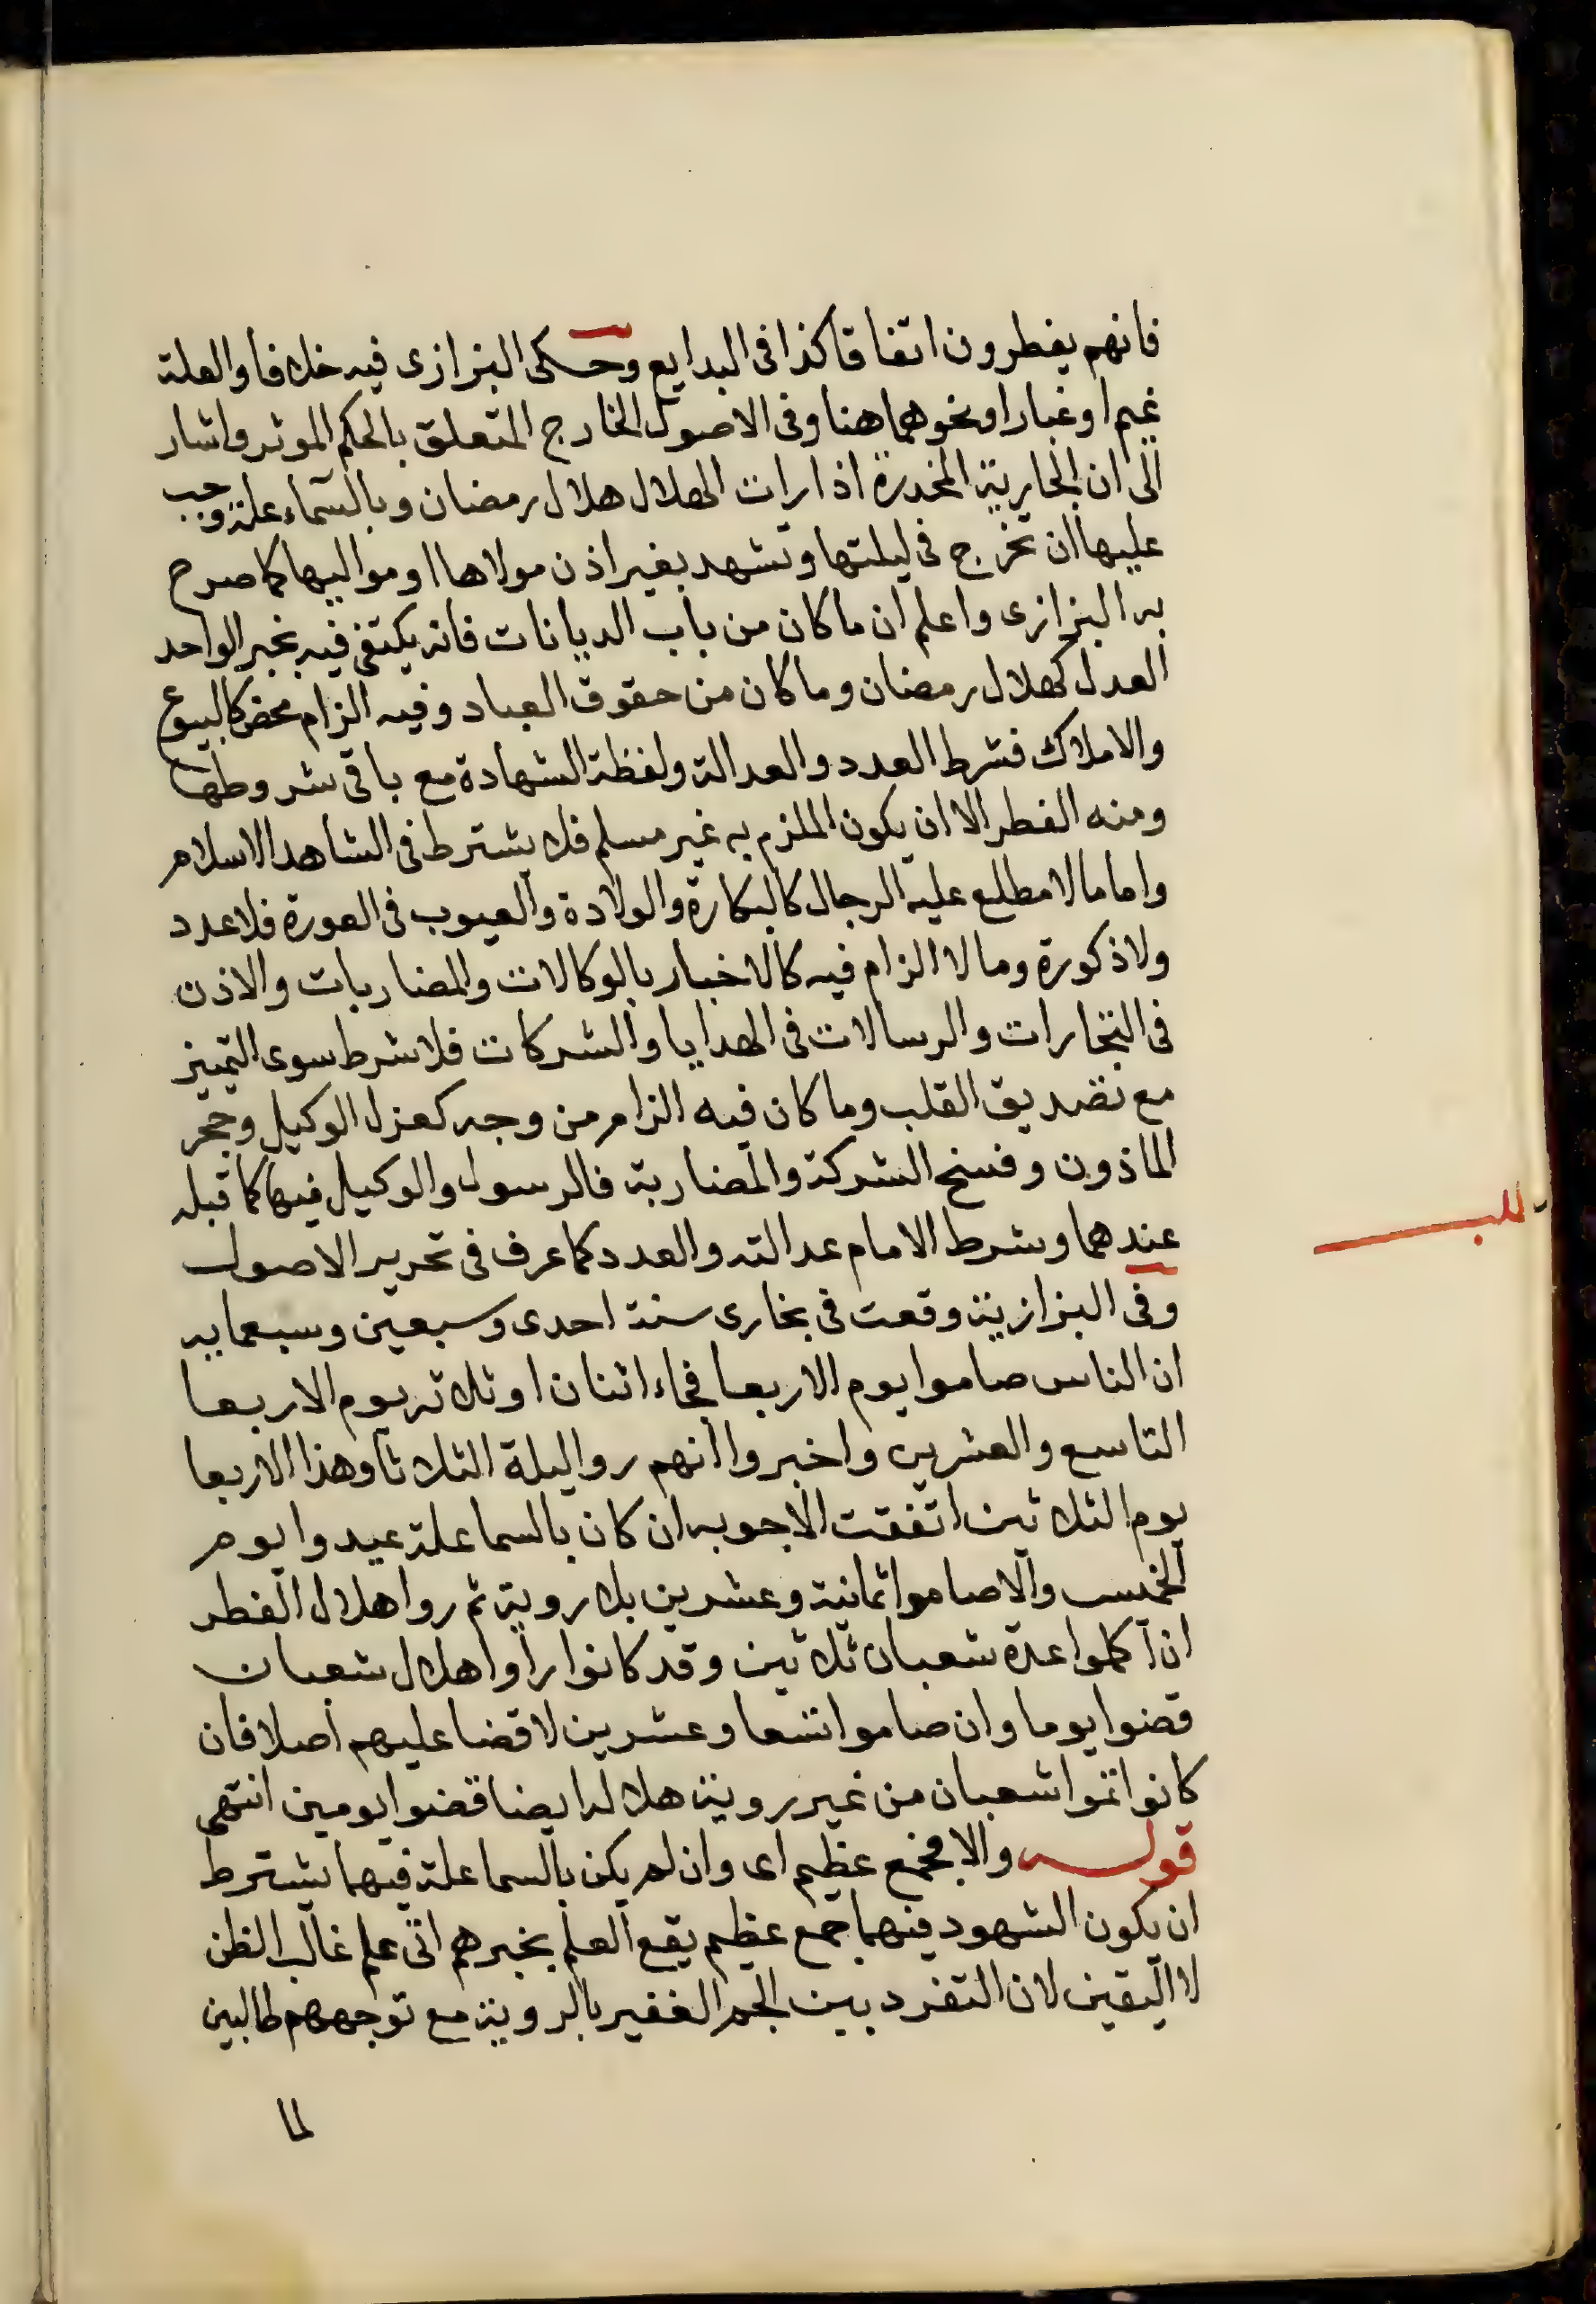 فانهم يفطرون اتفاقا كذا فى البدايع وحكى البزازى فيه خلافا والعلة
غيم او غبار او نحوهما هنا وفى الاصول الخارج المتعلق بالحكم الموثر واشار
الى ان الجارية المخدرة اذا رات الهلال هلال رمضان وبالسماء علة وجب
عليها ان تخرج فى ليلتها وتشهد بغير اذن مولاها او مواليها كما صرح
به البزازى واعلم ان ما كان من باب الديانات فانه يكتفى فيه بخبر الواحد
العدل كهلال رمضان وما كان من حقوق العباد وفيه الزام محض كالبيوع
والاملاك فشرط العدد والعدالة ولفظة الشهادة مع باقى شروطها
ومنه الفطر الا ان يكون الملزم به غير مسلم فلا يشترط فى الشاهد الاسلام
واما ما لا مطلع عليه الرجال كالبكارة والولادة والعيوب فى العورة فلا عدد
ولا ذكورة وما لا الزام فيه كالاخبار بالوكالات والمضاربات والاذن
فى التجارات والرسالات فى الهدايا والشركات فلا شرط سوى التميز
مع تصديق القلب وما كان فيه الزام من وجه كعزل الوكيل وحجر
الماذون وفسخ الشركة والمضاربة فالرسول والوكيل فيها كما قبله
عندهما وشرط الامام عدالته والعدد كما عرف فى تحرير الاصول
وفى البزازية وقعت فى بخارى سنة احدى وسبعين وسبعمايه
ان الناس صاموا يوم الاربعا فجاء اثنان او ثلاثه يوم الاربعا
التاسع والعشرين واخبروا انهم روا ليلة الثلاثا وهذا الاربعا
يوم الثلاثين اتفقت الاجوبه ان كان بالسما علة عيدوا يوم
الخميس والا صاموا ثمانية وعشرين بلا روية ثم روا هلال الفطر
ان اكملوا عدة شعبان ثلاثين وقد كانوا راوا هلال شعبان
قضوا يوما وان صاموا تسعا وعشرين لا قضا عليهم اصلا فان
كانوا اتموا شعبان من غير روية هلاله ايضا قضوا يومين انتهى
قوله والا فجمع عظيم اى وان لم يكن بالسما علة فيهما يشترط
ان يكون الشهود فيهما جمع عظيم يقع العلم بخبرهم اى علم غالب الظن
لا اليقين لان التفرد بين الجم الغفير بالروية مع توجههم طالبين
لما